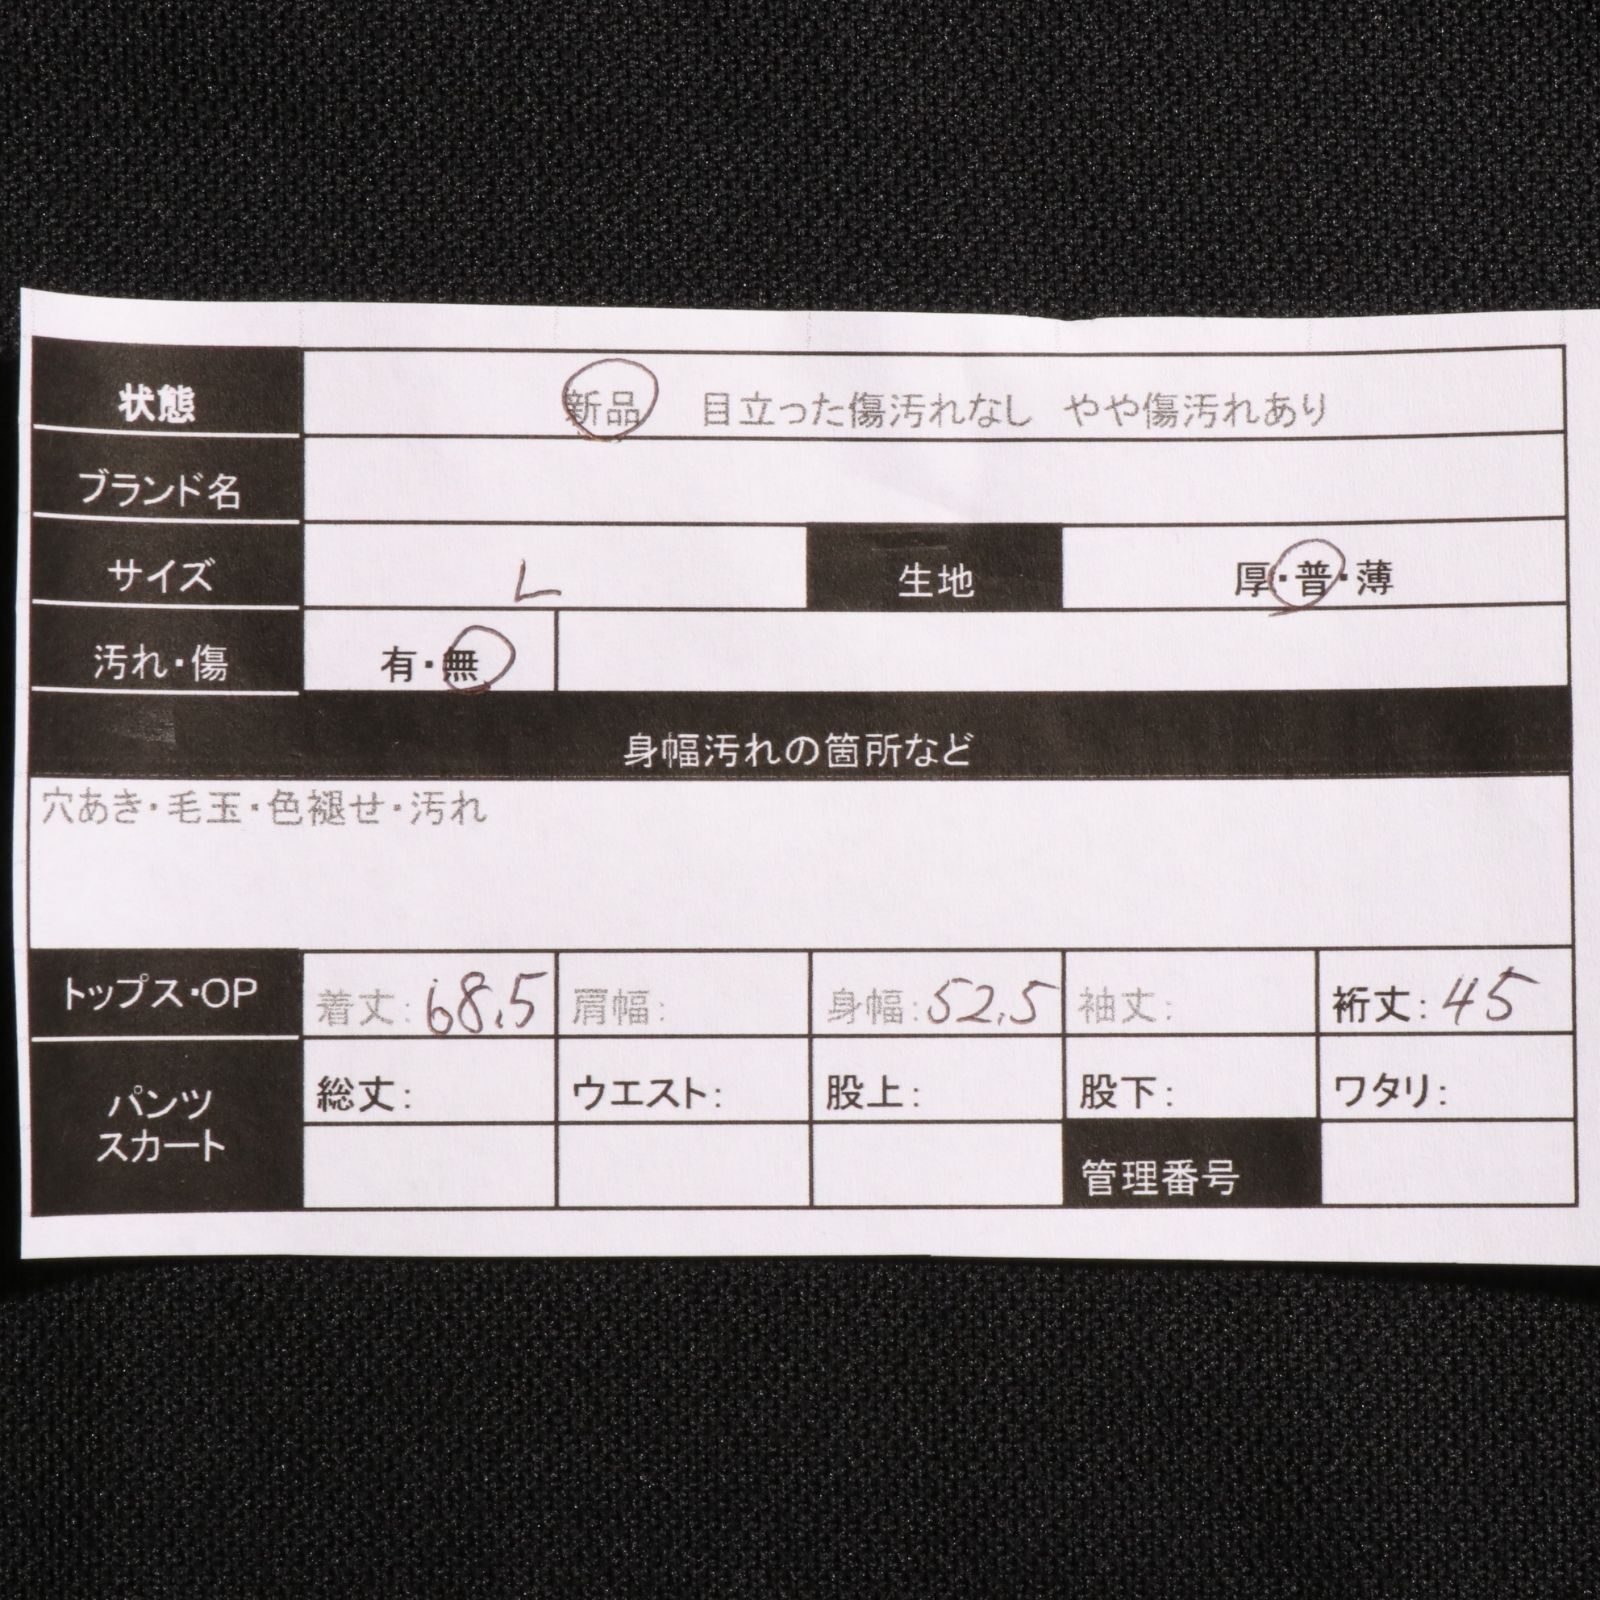 状態 新品 目立った傷汚れなし やや傷汚れあり
ブランド名
サイズ L 生地 厚・普・薄
汚れ・傷 有・無
身幅汚れの箇所など
穴あき・毛玉・色褪せ・汚れ
トップス・OP 着丈: 68.5 肩幅: 身幅: 52.5 袖丈: 裄丈: 45
パンツ 総丈: ウエスト: 股上: 股下: ワタリ:
スカート
管理番号